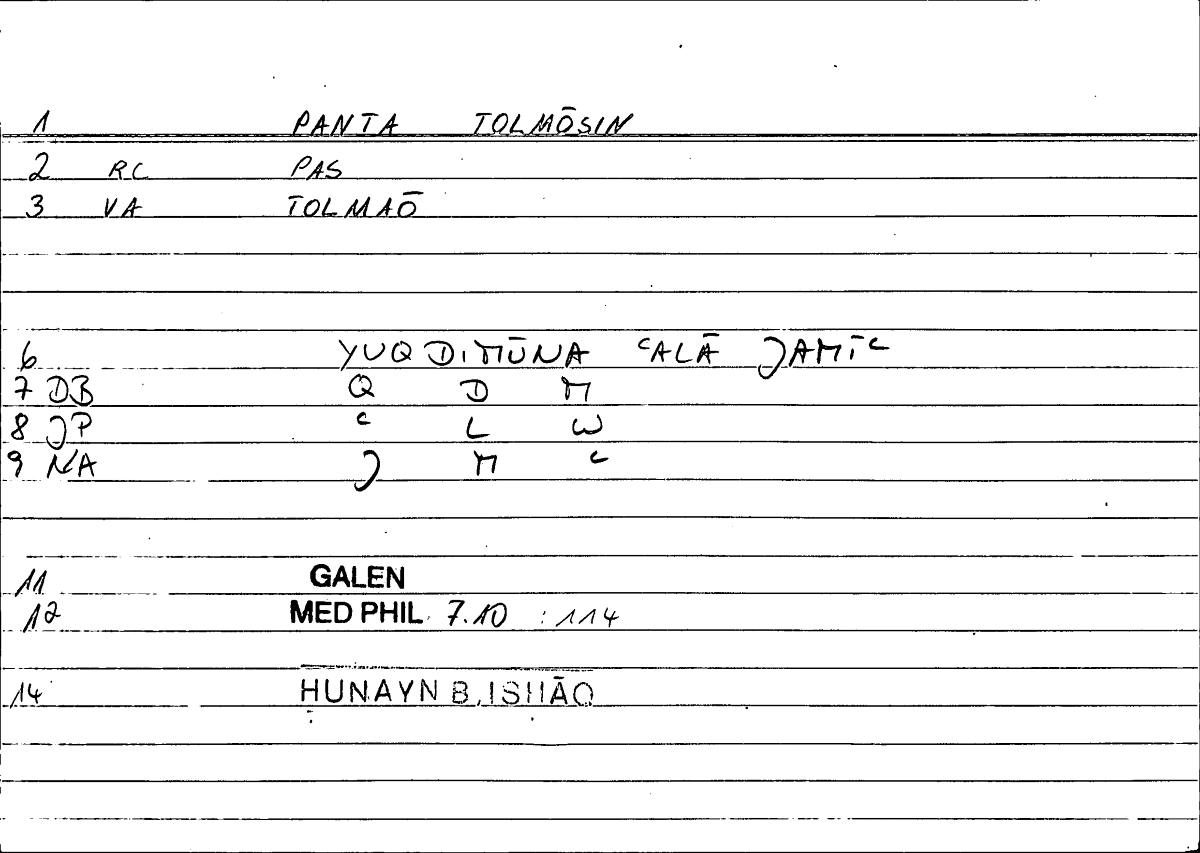 1 PANTA TOLMŌSIN
2 RC PAS
3 VA TOLMAŌ
6 YUQDIMŪNA ʿALĀ JAMĪʿ
7 DB Q D M
8 JP ʿ L W
9 NA J M ʿ
11 GALEN
12 MED PHIL 7.10 :114
14 ḤUNAYN B. ISḤĀQ